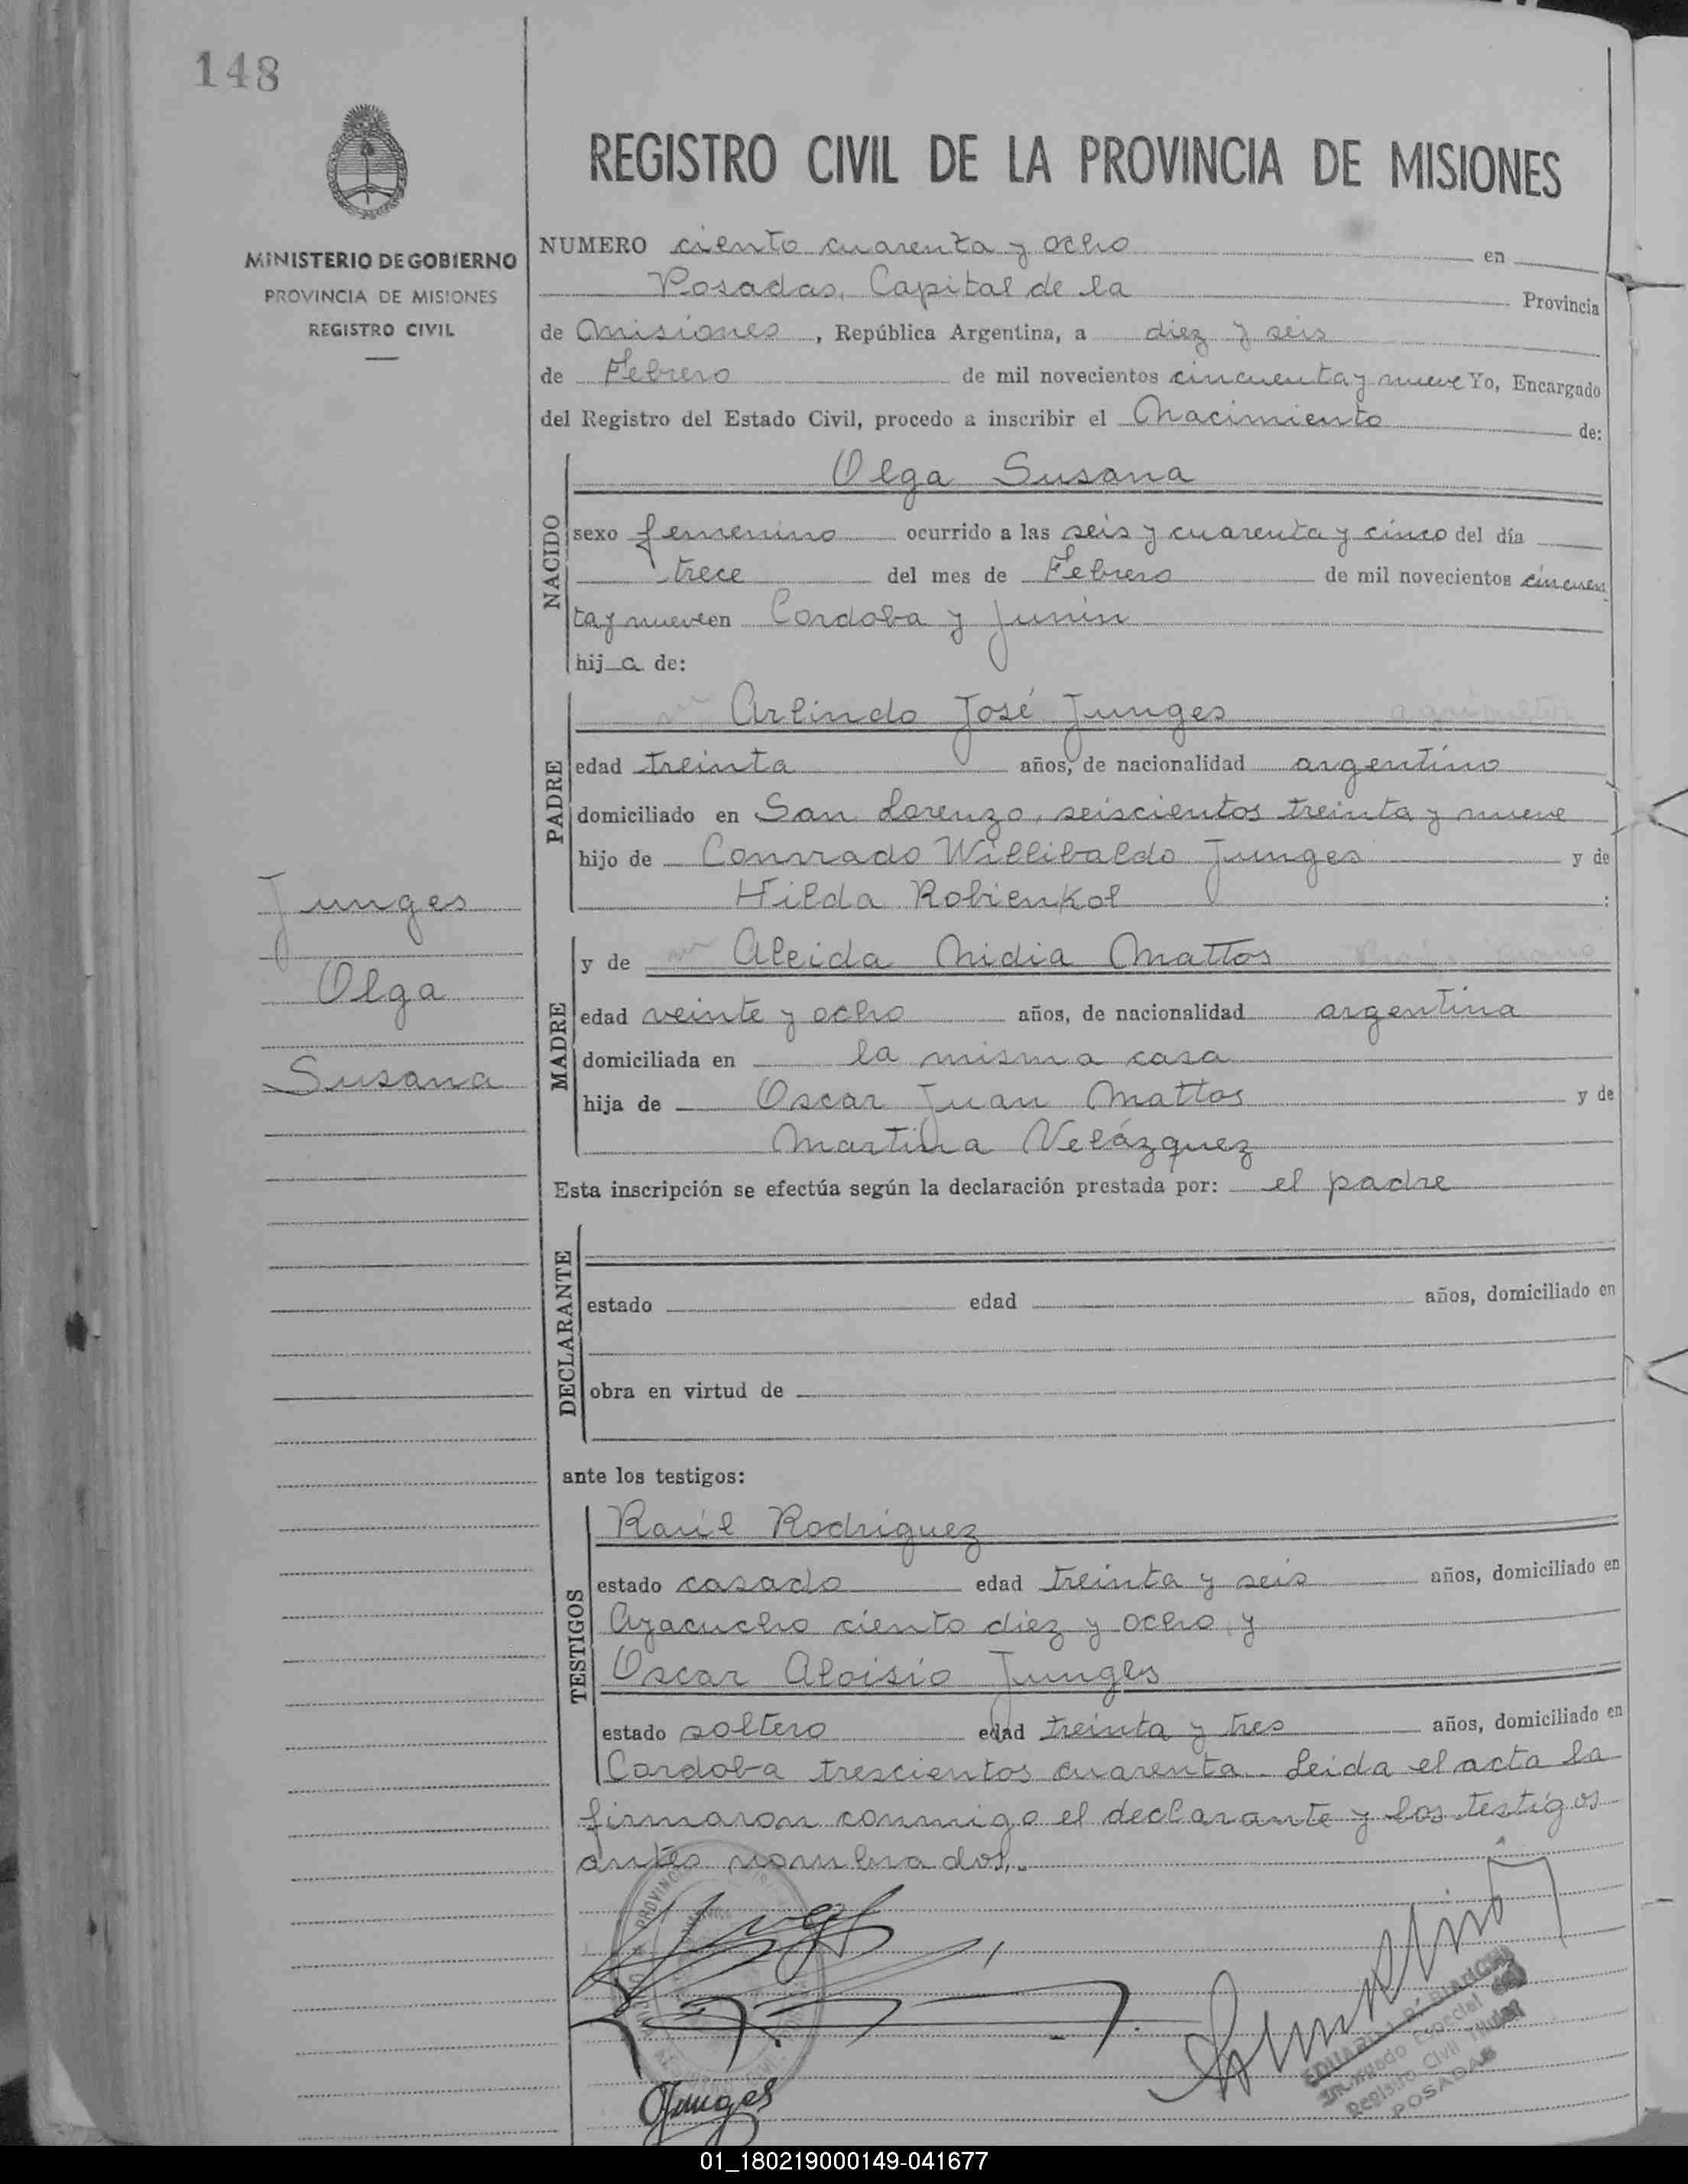 148
REGISTRO CIVIL DE LA PROVINCIA DE MISIONES
MINISTERIO DE GOBIERNO
PROVINCIA DE MISIONES
REGISTRO CIVIL
NUMERO ciento cuarenta y ocho en
Posadas, Capital de la Provincia
de Misiones, República Argentina, a diez y seis
de Febrero de mil novecientos cincuenta y nueve Yo, Encargado
del Registro del Estado Civil, procedo a inscribir el Nacimiento de:
NACIDO
Olga Susana
sexo femenino ocurrido a las seis y cuarenta y cinco del día
trece del mes de Febrero de mil novecientos cincuen
ta y nueve en Cordoba y Junin
hij a de:
PADRE
Arlindo José Junges agricultor
edad treinta años, de nacionalidad argentino
domiciliado en San Lorenzo, seiscientos treinta y nueve
hijo de Conrrado Willibaldo Junges y de
Hilda Robienkol :
Junges
Olga
Susana
MADRE
y de Aleida Nidia Mattos
edad veinte y ocho años, de nacionalidad argentina
domiciliada en la misma casa
hija de Oscar Juan Mattos y de
Martina Velázquez
Esta inscripción se efectúa según la declaración prestada por: el padre
DECLARANTE
estado edad años, domiciliado en
obra en virtud de
ante los testigos:
TESTIGOS
Raúl Rodriguez
estado casado edad treinta y seis años, domiciliado en
Ayacucho ciento diez y ocho y
Oscar Aloisio Junges
estado soltero edad treinta y tres años, domiciliado en
Cordoba trescientos cuarenta. Leida el acta la
firmaron conmigo el declarante y los testigos
antes nombrados.
Junges
Encargado Especial
Registro Civil Titular
POSADAS
01_180219000149-041677